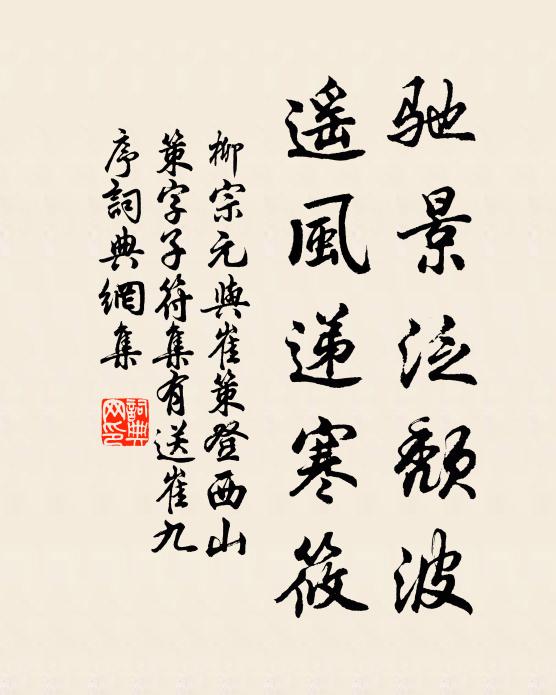 馳景泛頹波
遙風遞寒筱
柳宗元與崔策登西山
策字子符集有送崔九
序詞典網集
詞典網印